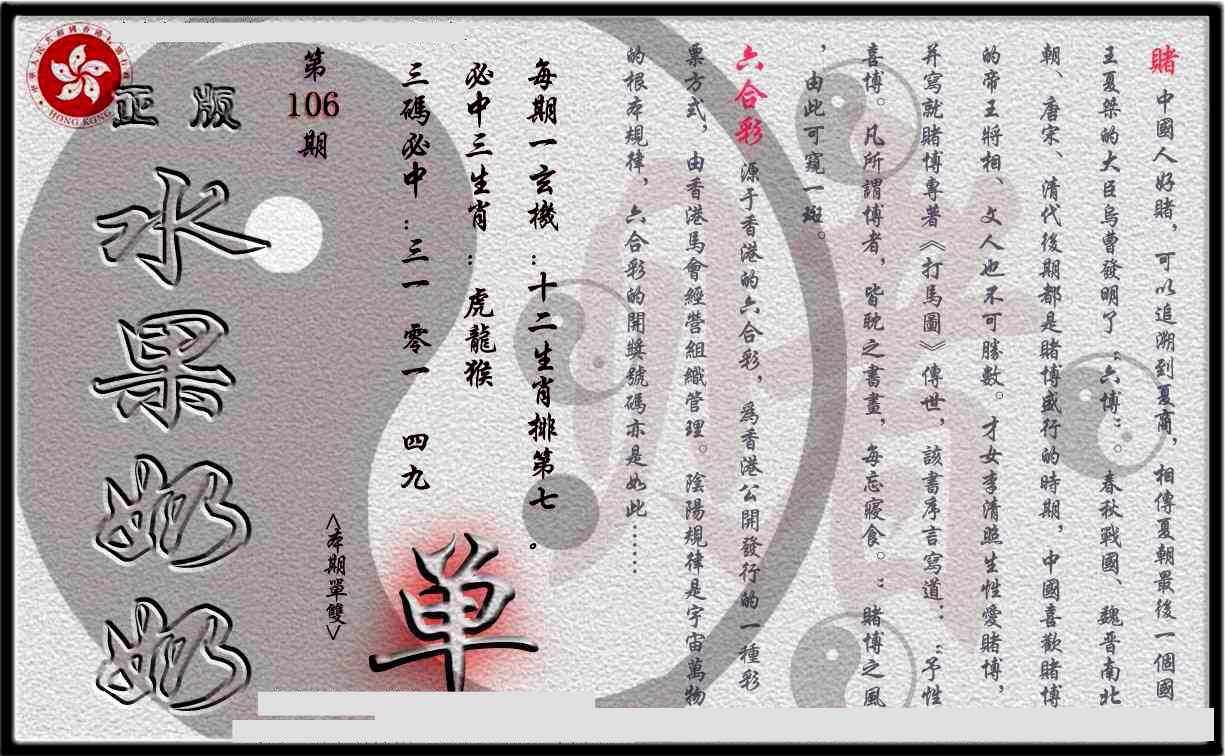 賭 中國人好賭，可以追溯到夏商，相傳夏朝最後一個國
王夏桀的大臣烏曹發明了“六博”。春秋戰國、魏晋南北
朝、唐宋、清代後期都是賭博盛行的時期，中國喜歡賭博
的帝王將相、文人也不可勝數。才女李清照生性愛賭博，
并寫就賭博專著《打馬圖》傳世，該書序言寫道：“予性
喜博。凡所謂博者，皆耽之晝夜，每忘寢食。”賭博之風
，由此可窺一斑。
六合彩 源于香港的六合彩，爲香港公開發行的一種彩
票方式，由香港馬會經營組織管理。陰陽規律是宇宙萬物
的根本規律，六合彩的開獎號碼亦是如此……
每期一玄機：十二生肖排第七。
必中三生肖：虎龍猴
三碼必中：三一 零一 四九
单
<本期單雙>
第106期
正版
水果奶奶
HONG KONG